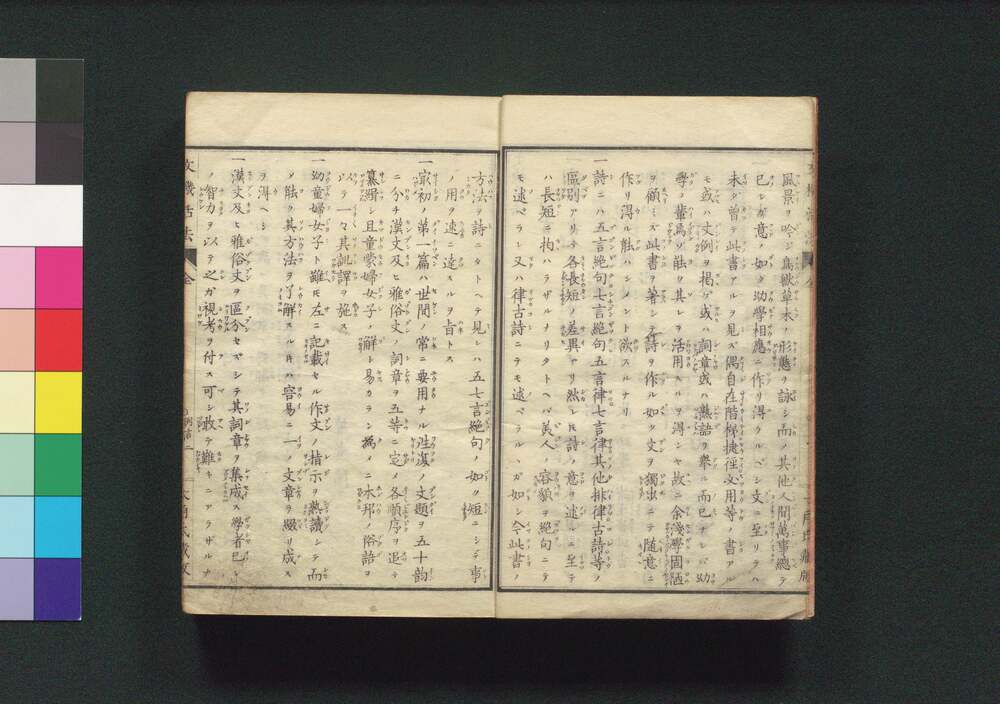 風景ヲ吟シ鳥獣草木ノ形態ヲ詠シ而ノ其他人間萬事總テ
已レガ意ノ如ク助學相應ニ作リ得ラルベシ文ニ至リテハ
未ダ曾テ此書アルヲ見ズ偶自在階梯捷徑文用等ノ書アル
モ或ハ文例ヲ掲ゲ或ハ詞章或ハ熟語ヲ擧ルニ而已ナレバ幼
學ノ輩焉ソ能ク其レヲ活用スルヲ得ンヤ故ニ余淺學固陋
ヲ顧ミズ此書ヲ著シテ詩ヲ作ル如ク文ヲ獨出ニテ随意ニ
作リ得ル能ハシメント欲スルナリ
一詩ニハ五言絶句七言絶句五言律七言律其他排律古詩等ノ
區別アリテ各長短ノ差異アリ然レ𪜈詩ノ意ヲ述ルニ至テ
ハ長短ニ拘ハラザルナリタトヘバ美人ノ容貌ヲ絶句ニテ
モ述ベラレ又ハ律古詩ニテモ述ベラルヽガ如シ今此書ノ
方法ヲ詩ニタトヘテ見レハ五七言絶句ノ如ク短ニシテ事
ノ用ヲ速ニ達スルヲ旨トス
一最初ノ第一篇ハ世間ノ常ニ要用ナル往復ノ文題ヲ五十韵
ニ分チ漢文及ヒ雅俗文ノ詞章ヲ五等ニ定メ各順序ヲ追テ
纂輯シ且童蒙婦女子ノ解ト易カラン為メニ本邦ノ俗語ヲ
以テ一々其訓譯ヲ施ス
一幼童婦女子ト雖𪜈左ニ記載セル作文ノ指示ヲ熟讀シテ而
メ能ク其方法ヲ了解スル𪜈ハ容易ニ一ノ文章ヲ綴リ成ス
ヲ得ヘシ
一漢文及ヒ雅俗文ヲ區分セズシテ其詞章ヲ集成ス學者已レ
ノ智力ヲ以テ之ガ視考ヲ付ス可シ敢テ難キニアラザルナ
文機活法
全
例言二